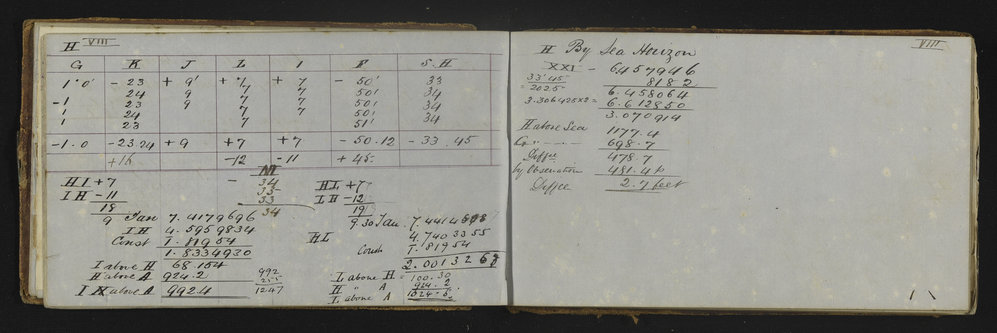 H VIII
G K J L I F S.H
1°0' - 23 + 9' + 7 + 7 - 50' 33
24 9 7 7 50' 34
-1 23 9 7 7 50' 34
1 24 7 50' 34
1 23 7 51'
-1.0 -23.24 +9 +7 +7 -50.12 -33.45
+16 -12 -11 +45
HI +7
IH -11
18
9 Tan 7.4179696
IH 4.5959834
Const 1.81954
1.8334930
I above H 68.154
H above A 924.2
above A 992.4
34
33
34
992
1247
HI +7
IH -12
19
9.30 Tan
HI 4.7403355
Const 1.81954
2.0013268
L above H = 100.30
H " A 924.2
L above A 1024.5
H By Sea Horizon VIII
XXI - 6457946
33'45" 8182
= 2025" 6.458064
3.306425x2= 6.612850
3.070914
H above Sea 1177.4
698.7
Diffce 478.7
by Observation 481.4
Diffce 2.7 feet